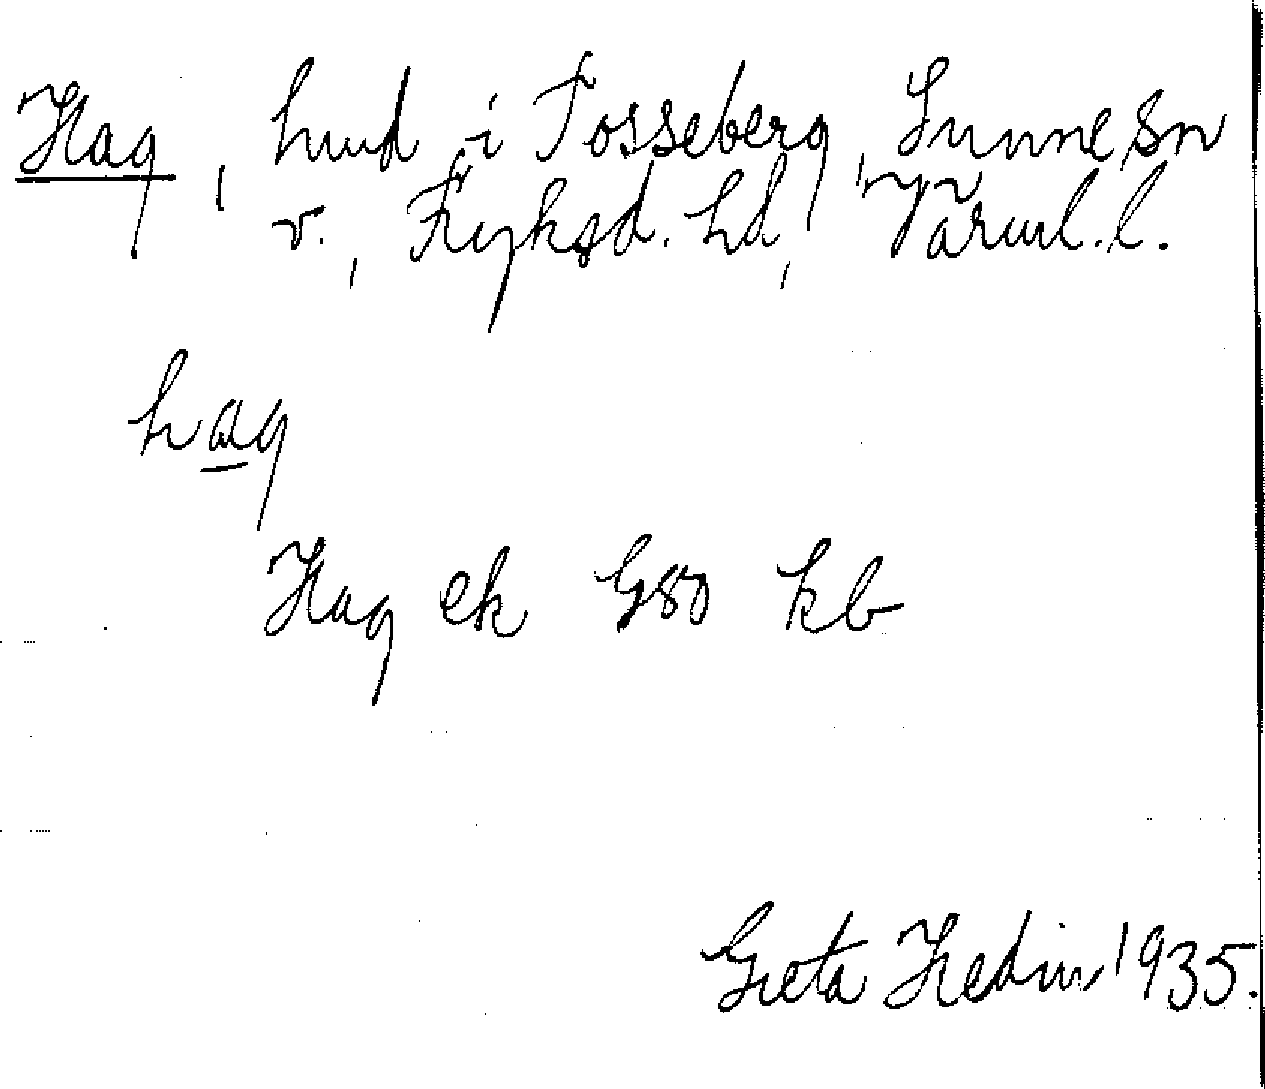 Hag, hmd i Tosseberg, Sunne sn
v., Fryksd. hd, Värml. l.
hag
Hag ek G80 kb
Greta Hedin 1935.